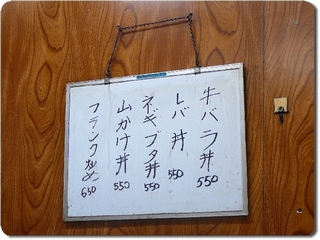 牛バラ丼 550
レバ丼 550
ネギブタ丼 550
山かけ丼 550
フランク炒め 650